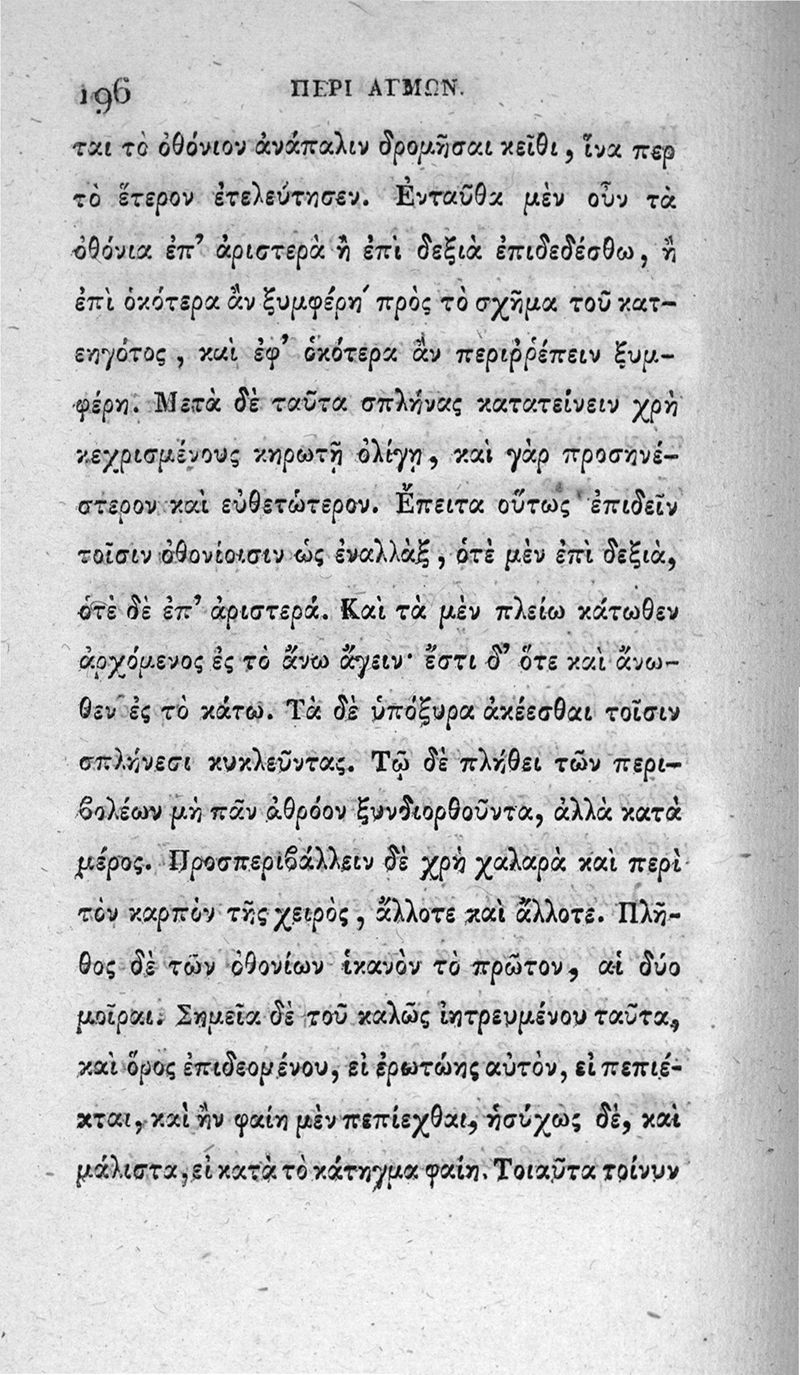 196 ΠΕΡΙ ΑΓΜΩΝ.
ται τὸ ὀθόνιον ἀνάπαλιν δρομῆσαι κεῖθι, ἵνα περ
τὸ ἕτερον ἐτελεύτησεν. Ἐνταῦθα μὲν οὖν τὰ
ὀθόνια ἐπ’ ἀριστερὰ ἢ ἐπὶ δεξιὰ ἐπιδεδέσθω, ἢ
ἐπὶ ὁκότερα ἂν ξυμφέρῃ πρὸς τὸ σχῆμα τοῦ κατ-
εηγότος, καὶ ἐφ’ ὁκότερα ἂν περιῤῥέπειν ξυμ-
φέρῃ. Μετὰ δὲ ταῦτα σπλῆνας κατατείνειν χρὴ
κεχρισμένους κηρωτῇ ὀλίγῃ, καὶ γὰρ προσηνέ-
στερον καὶ εὐθετώτερον. Ἔπειτα οὕτως ἐπιδεῖν
τοῖσιν ὀθονίοισιν ὡς ἐναλλὰξ, ὁτὲ μὲν ἐπὶ δεξιὰ,
ὁτὲ δὲ ἐπ’ ἀριστερά. Καὶ τὰ μὲν πλείω κάτωθεν
ἀρχόμενος ἐς τὸ ἄνω ἄγειν· ἔστι δ’ ὅτε καὶ ἄνω-
θεν ἐς τὸ κάτω. Τὰ δὲ ὑπόξυρα ἀκέεσθαι τοῖσιν
σπλήνεσι κυκλεῦντας. Τῷ δὲ πλήθει τῶν περι-
βολέων μὴ πᾶν ἀθρόον ξυνδιορθοῦντα, ἀλλὰ κατὰ
μέρος. Προσπεριβάλλειν δὲ χρὴ χαλαρὰ καὶ περὶ
τὸν καρπὸν τῆς χειρὸς, ἄλλοτε καὶ ἄλλοτε. Πλῆ-
θος δὲ τῶν ὀθονίων ἱκανὸν τὸ πρῶτον, αἱ δύο
μοῖραι. Σημεῖα δὲ τοῦ καλῶς ἰητρευμένου ταῦτα,
καὶ ὅρος ἐπιδεομένου, εἰ ἐρωτώης αὐτὸν, εἰ πεπιέ-
κται, καὶ ἢν φαίη μὲν πεπίεχθαι, ἡσύχως δὲ, καὶ
μάλιστα, εἰ κατὰ τὸ κάτηγμα φαίη. Τοιαῦτα τοίνυν